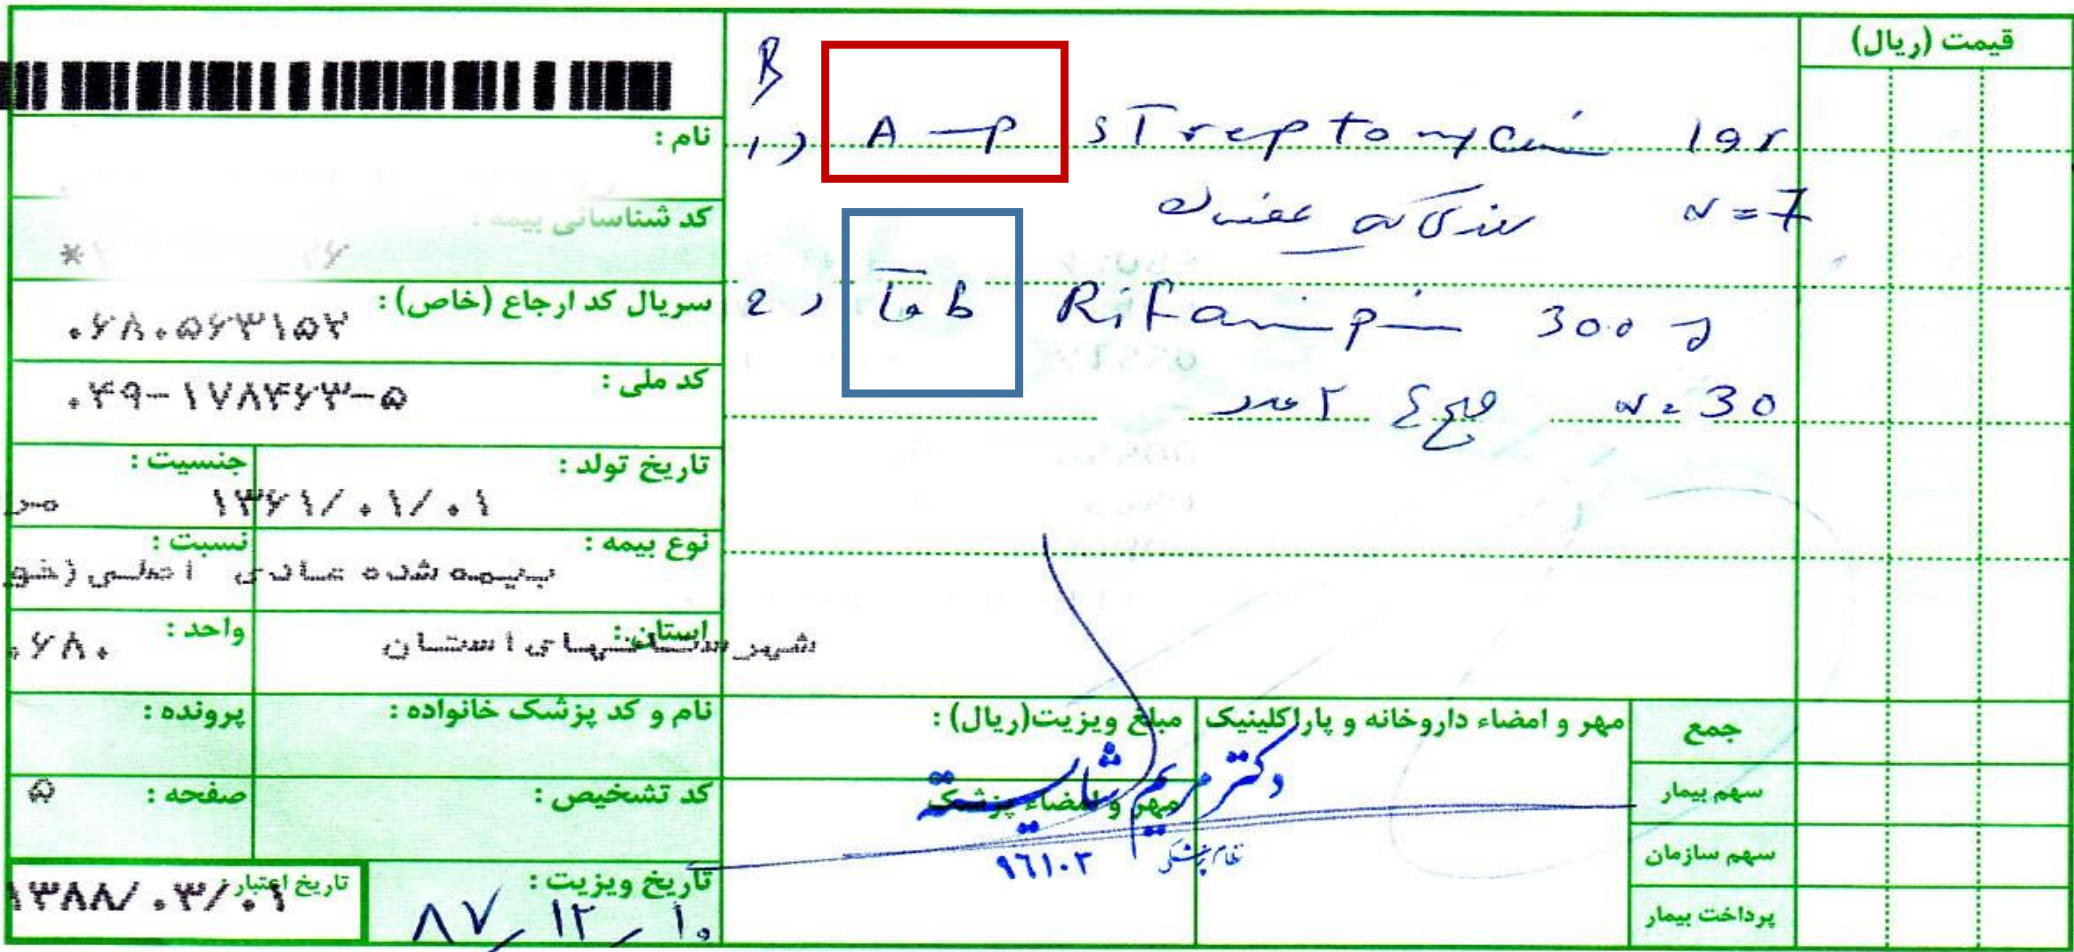 قیمت (ریال)
R
1) Amp Streptomycin 1gr
روزی یک عضلانی N=7
2) Tab Rifampin 300
صبح ۲ عدد N=30
نام :
کد شناسائی بیمه :
*
۲۶
سریال کد ارجاع (خاص) :
۰۶۸۰۵۶۳۱۵۲
کد ملی :
۰۴۹-۱۷۸۴۶۳-۵
تاریخ تولد :
۱۳۶۱/۰۱/۰۱
جنسیت :
مر
نوع بیمه :
بیمه شده عادی
نسبت :
اصلی (خو
استان :
شهرستانهای استان
واحد :
۰۶۸۰
نام و کد پزشک خانواده :
پرونده :
کد تشخیص :
صفحه :
۵
تاریخ ویزیت :
۸۷/۱۲/۱۰
تاریخ اعتبار :
۱۳۸۸/۰۳/۰۶
مبلغ ویزیت(ریال) :
مهر و امضاء پزشک
دکتر مریم شایسته
نظام پزشکی ۹۶۱۰۳
مهر و امضاء داروخانه و پاراکلینیک
جمع
سهم بیمار
سهم سازمان
پرداخت بیمار